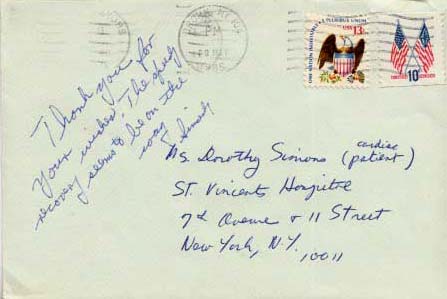 E PLURIBUS UNUM
ONE NATION INDIVISIBLE
USA 13c
10c
PM
Thank you for
your wishes. The speedy
recovery seems to be on the
way
Ms. Dorothy Simons (cardiac patient)
St. Vincents Hospital
7th Avenue & 11 Street
New York, N.Y.
10011